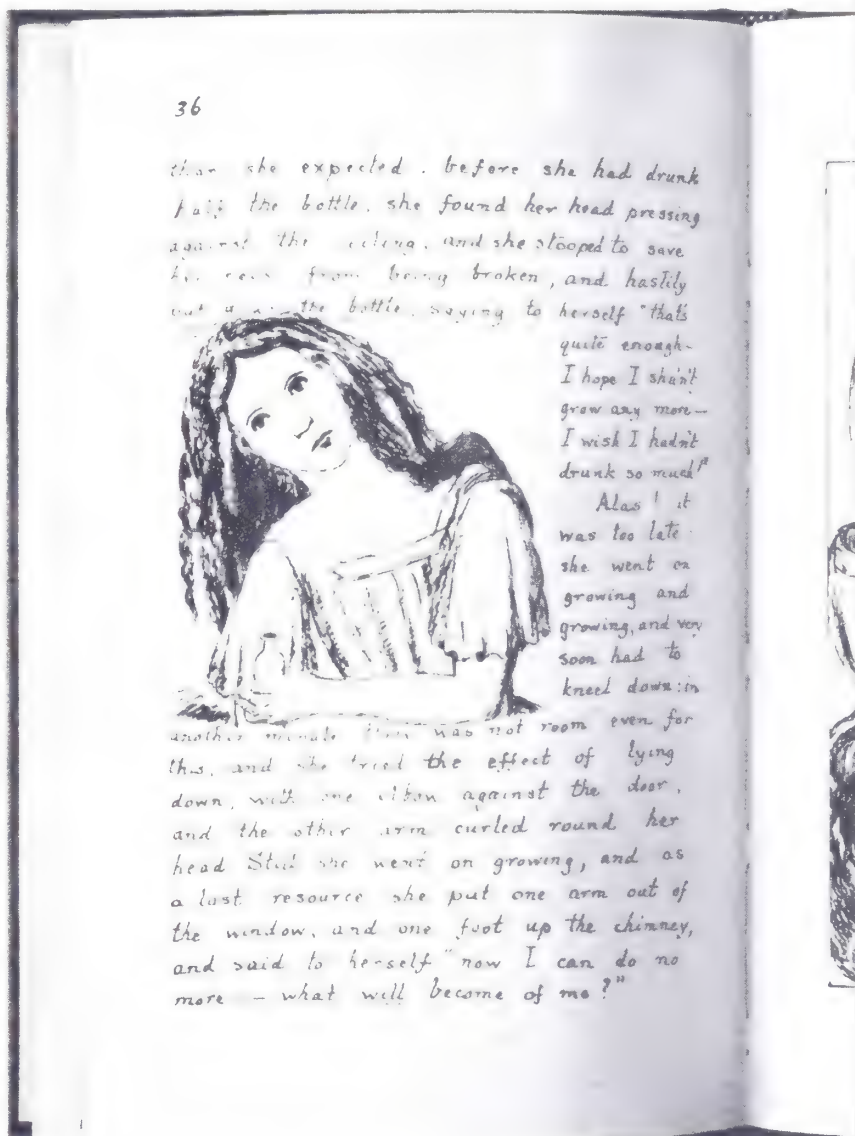 36
than she expected : before she had drunk
half the bottle, she found her head pressing
against the ceiling, and she stooped to save
her neck from being broken, and hastily
put down the bottle, saying to herself "that's
quite enough—
I hope I shan't
grow any more—
I wish I hadn't
drunk so much!"
Alas! it
was too late:
she went on
growing and
growing, and very
soon had to
kneel down: in
another minute there was not room even for
this, and she tried the effect of lying
down, with one elbow against the door,
and the other arm curled round her
head. Still she went on growing, and as
a last resource she put one arm out of
the window, and one foot up the chimney,
and said to herself "now I can do no
more — what will become of me?"